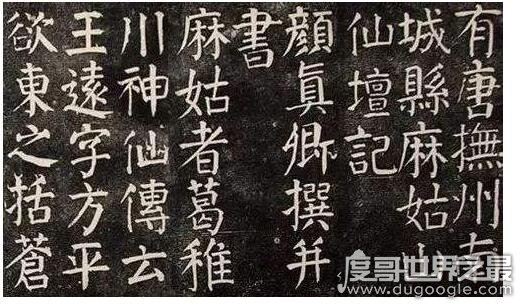 有唐撫州南
城縣麻姑山
仙壇記
顏眞卿撰并
書
麻姑者葛稚
川神仙傳云
王遠字方平
欲東之括蒼
度哥世界之最
www.dugoogle.com